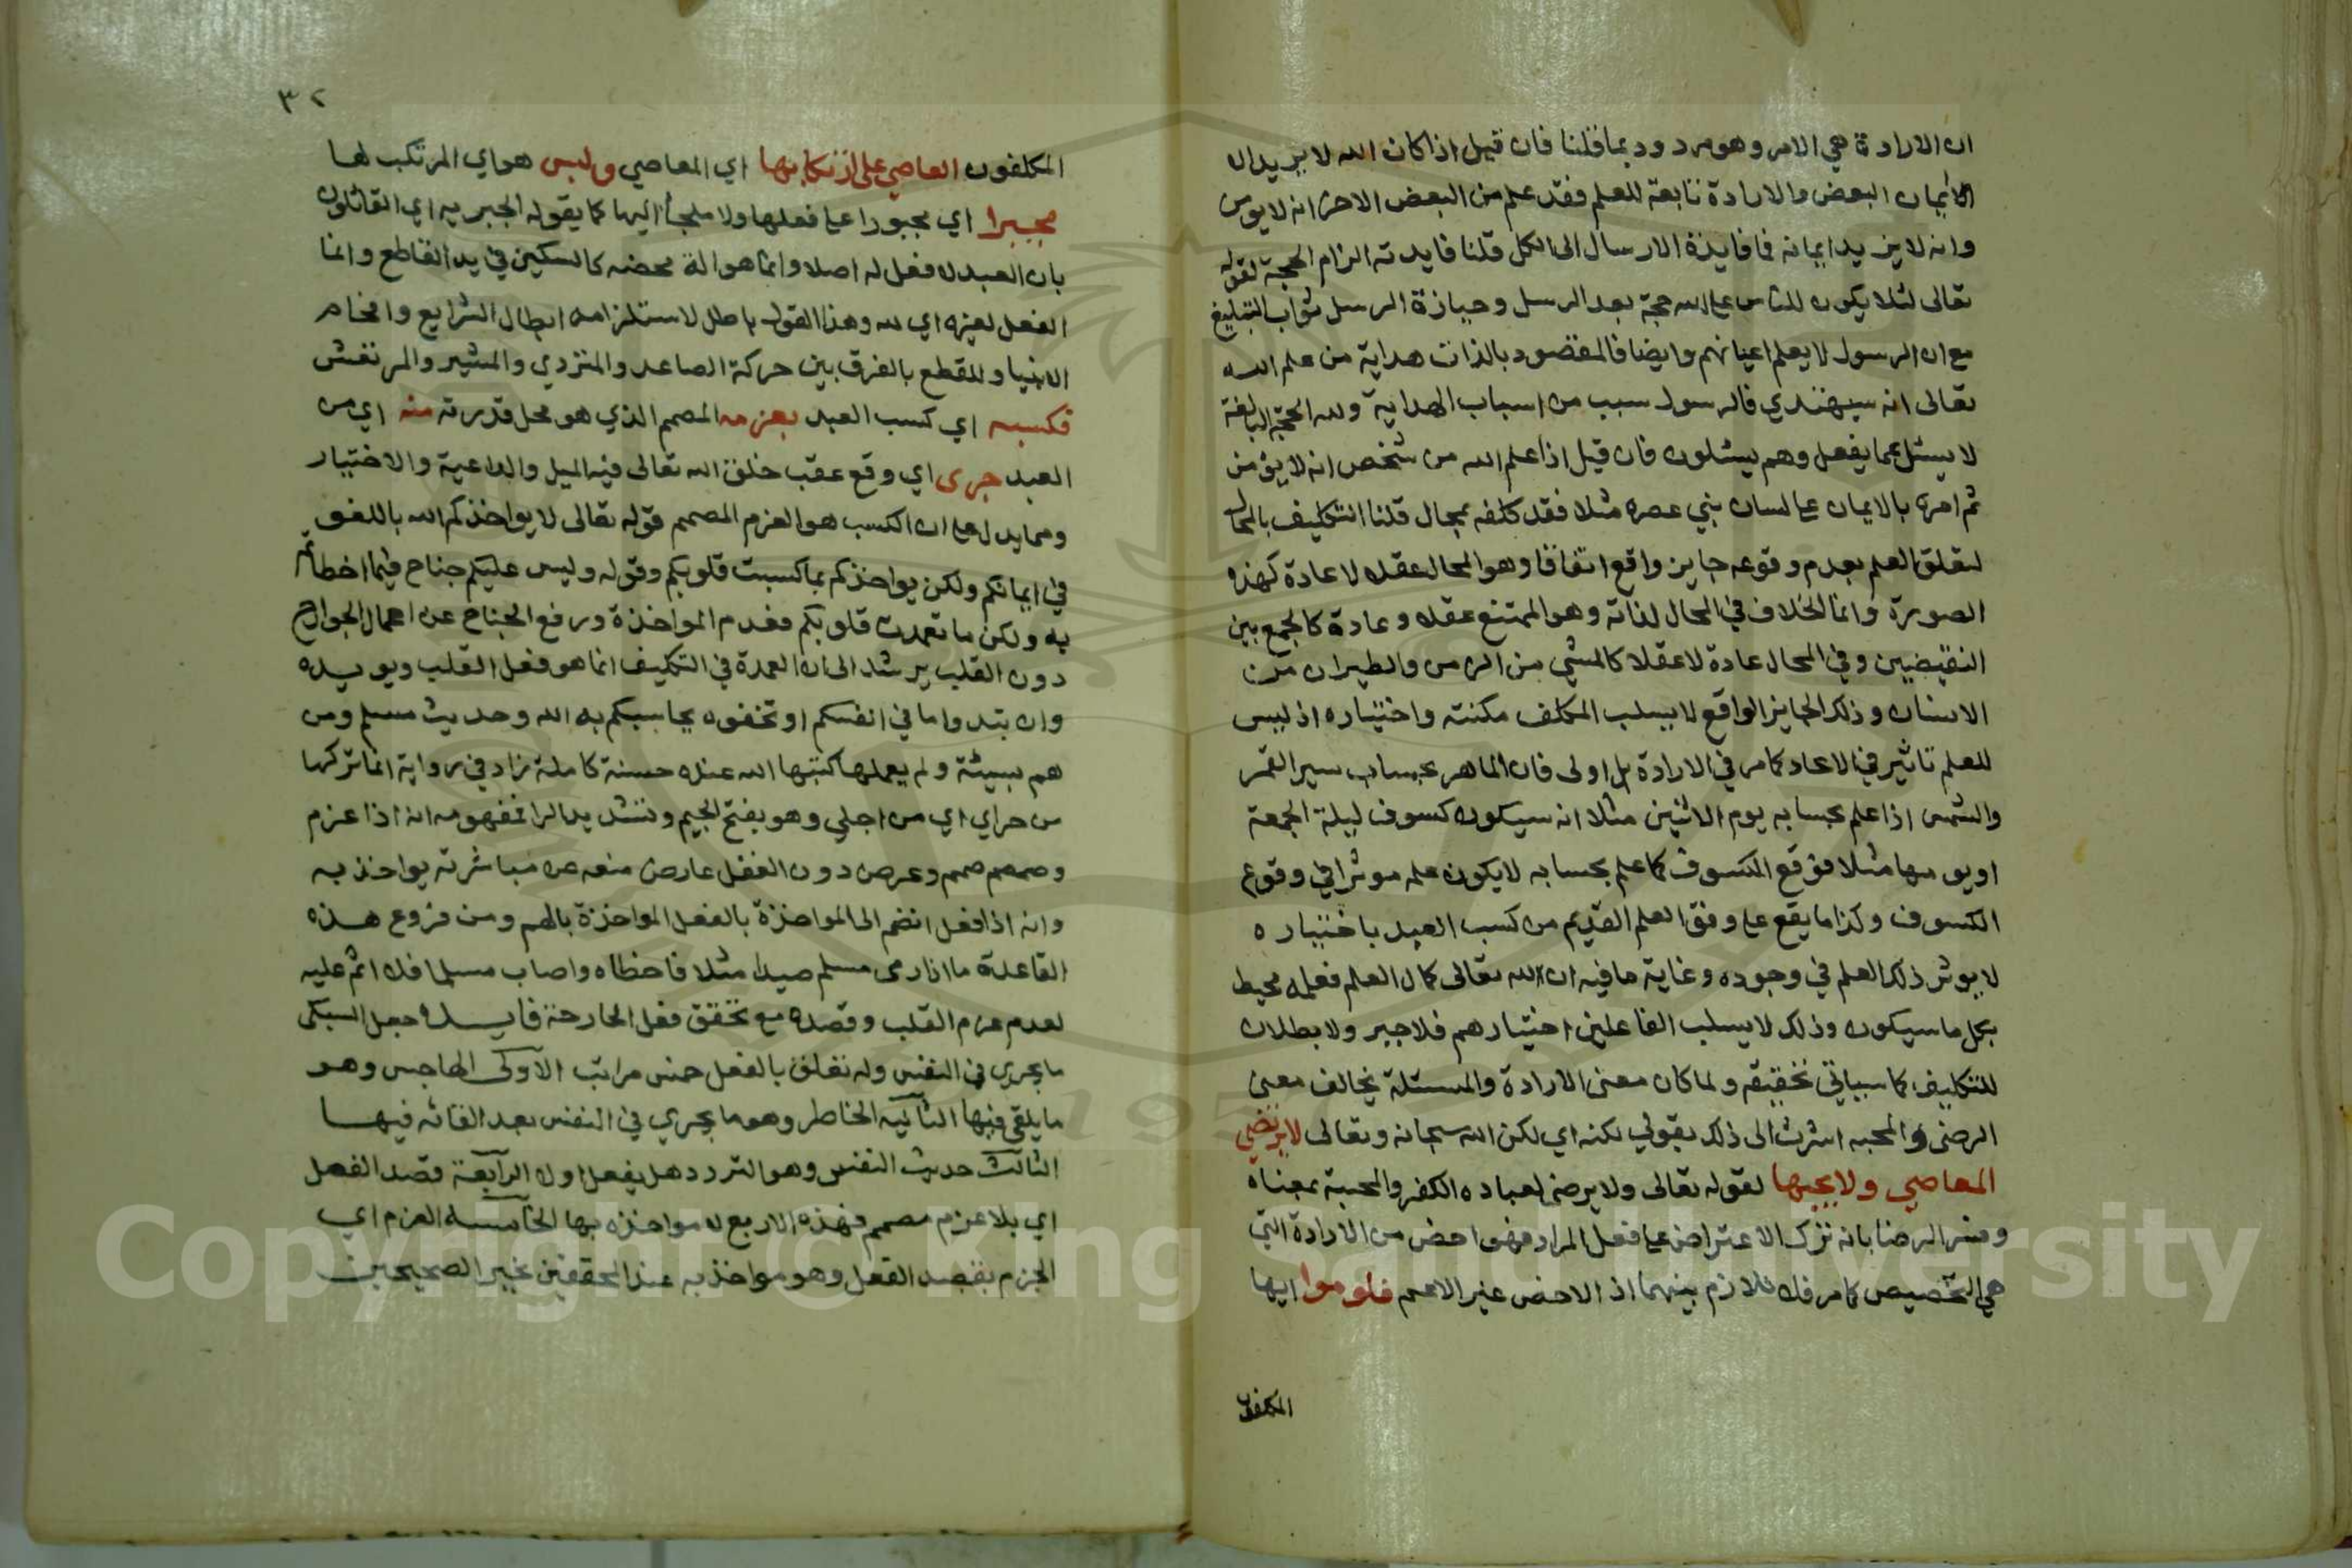 ان الارادة هي الامر وهو مردود بما قلنا فان قيل اذا كان الله لا يريد الا
الايمان البعض والارادة تابعة للعلم فقد علم من البعض الاخر انه لا يومن
وانه لا يريد ايمانه فما فايدة الارسال الى الكل قلنا فايدته الزام الحجة لقوله
تعالى لئلا يكون للناس على الله حجة بعد الرسل وحيازة الرسل ثواب التبليغ
مع ان الرسول لا يعلم اعيانهم وايضا فالمقصود بالذات هداية من علم الله
تعالى انه سيهتدي فالرسول سبب من اسباب الهداية ولله الحجة البالغة
لا يسئل عما يفعل وهم يسئلون فان قيل اذا علم الله من شخص انه لا يؤمن
ثم امره بالايمان على لسان نبي عصره مثلا فقد كلفه بمحال قلنا التكليف بالمحال
لتعلق العلم بعدم وقوعه جايز واقع اتفاقا وهو المحال عقلا لا عادة كهذه
الصورة وانما الخلاف في المحال لذاته وهو الممتنع عقلا وعادة كالجمع بين
النقيضين وفي المحال عادة لا عقلا كالمشي من الزمن والطيران من
الانسان وذلك الجايز الواقع لا يسلب المكلف مكنته واختياره اذ ليس
للعلم تاثير في الايجاد كما مر في الارادة بل اولى فان الماهر بحساب سير القمر
والشمس اذا علم بحسابه يوم الاثنين مثلا انه سيكون كسوف ليلة الجمعة
او يومها مثلا فوقع الكسوف كما علم بحسابه لا يكون علمه موثرا في وقوع
الكسوف وكذا ما يقع على وفق العلم القديم من كسب العبد باختياره
لا يوثر ذلك العلم في وجوده وغاية ما فيه ان لله تعالى كمال العلم فعلمه محيط
بكل ما سيكون وذلك لا يسلب الفاعلين اختيارهم فلا جبر ولا بطلان
للتكليف كما سياتي تحقيقه ولما كان معنى الارادة والمسئلة يخالف معنى
الرضى والمحبه اشرت الى ذلك بقولي لكنه اي لكن الله سبحانه وتعالى لا يرتضي
المعاصي ولا يحبها لقوله تعالى ولا يرضى لعباده الكفر والمحبة بمعناه
وفسر الرضا بانه ترك الاعتراض على فعل المراد فهو اخص من الارادة التي
هي التخصيص كما مر فلا تلازم بينهما اذ الاخص غير الاعم فلوموا ايها
المكلفون
٣٢
المكلفون العاصي على ارتكابها اي المعاصي وليس هو اي المرتكب لها
مجبرا اي مجبورا على فعلها ولا ملجأ اليها كما يقوله الجبريه اي القائلون
بان العبد لا فعل له اصلا وانما هو الة محضه كالسكين في يد القاطع وانما
الفعل لغيره اي لله وهذا القول باطل لاستلزامه ابطال الشرايع وافحام
الانبيا وللقطع بالفرق بين حركة الصاعد والمتردي والمشير والمرتعش
فكسبه اي كسب العبد بعزمه المصمم الذي هو محل قدرته منه اي من
العبد جرى اي وقع عقب خلق الله تعالى فيه الميل والداعية والاختيار
ومما يدل على ان الكسب هو العزم المصمم قوله تعالى لا يواخذكم الله باللغو
في ايمانكم ولكن يواخذكم بما كسبت قلوبكم وقوله وليس عليكم جناح فيما اخطأتم
به ولكن ما تعمدت قلوبكم فعدم المواخذة ورفع الجناح عن اعمال الجوارح
دون القلب يرشد الى ان العمدة في التكليف انما هو فعل القلب ويويده
وان تبدوا ما في انفسكم او تخفوه يحاسبكم به الله وحديث مسلم ومن
هم بسيئة ولم يعملها كتبها الله عنده حسنة كاملة زاد في رواية انما تركها
من جراي اي من اجلي وهو بفتح الجيم وتشديد الرا فمفهومه انه اذا عزم
وصمم وعرض دون الفعل عارض منعه من مباشرته يواخذ به
وانه اذا فعل انضم الى المواخذة بالفعل المواخذة بالهم ومن فروع هذه
القاعدة ما اذا رمى مسلم صيدا مثلا فاخطاه واصاب مسلما فلا اثم عليه
لعدم عزم القلب وقصده مع تحقق فعل الجارحة فايدة جعل السبكى
ما يجري في النفس وله تعلق بالفعل خمس مراتب الاولى الهاجس وهو
ما يلقى فيها الثانيه الخاطر وهو ما يجري في النفس بعد القائه فيها
الثالث حديث النفس وهو التردد هل يفعل او لا الرابعة قصد الفعل
اي بلا عزم مصمم فهذه الاربع لا مواخذه بها الخامسه العزم اي
الجزم بقصد الفعل وهو مواخذ به عند المحققين لخبر الصحيحين
Copyright © King Saud University
1957